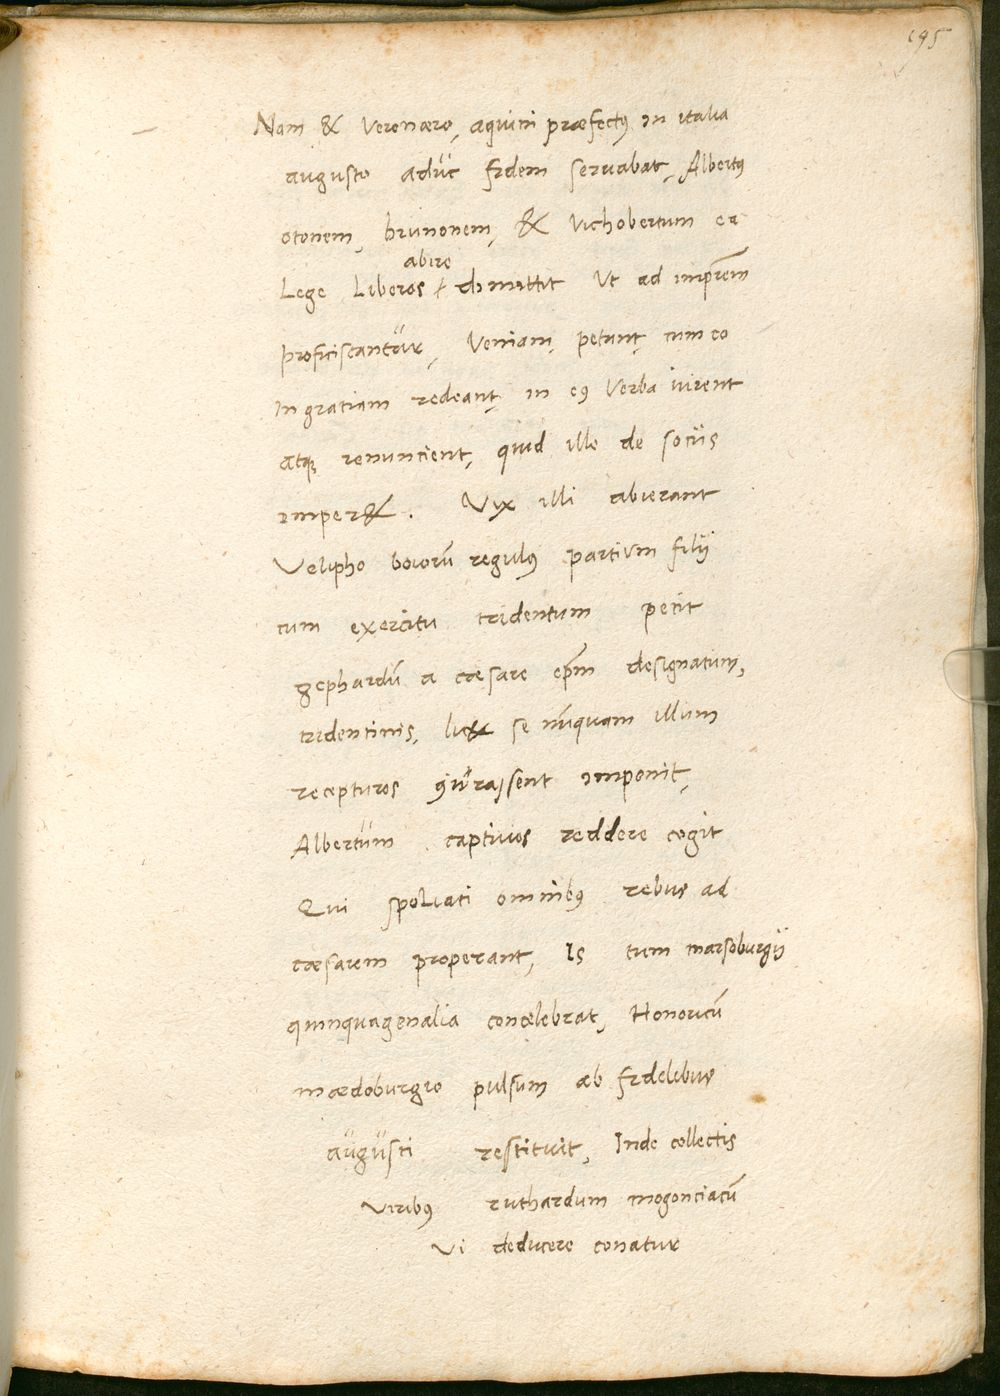 195
Nam & Verenæro, aquini præfectꝰ in italia
augusto adüc fidem servabat, Albertꝰ
otonem, brunonem, & Vichobertum ea
abire
Lege Liberos dimittit Ut ad imprẽm
proficiscantür, Veniam, petant, cum eo
In gratiam redeant, in eꝰ Verba iurent
atqꝫ renuncient, quid ille de sociis
imper&. Vix illi abierant
Velipho boiorũ regulꝰ partium filij
cum exercitu tridentum petit
gephardũ a cæsare epm̃ designatum,
tridentinis, lic& se nũquam illum
recepturos ꝯiurassent imponit,
Albertüm captivos reddere cogit
Qui spoliati omnibꝰ rebus ad
cæsarem properant, Is tum marsoburgij
quinquagenalia concelebrat, Honoricũ
mædoburgio pulsum ab fidelibus
aügüsti restituit, Inde collectis
viribꝰ ruthardum mogonciacũ
Vi deducere conatur